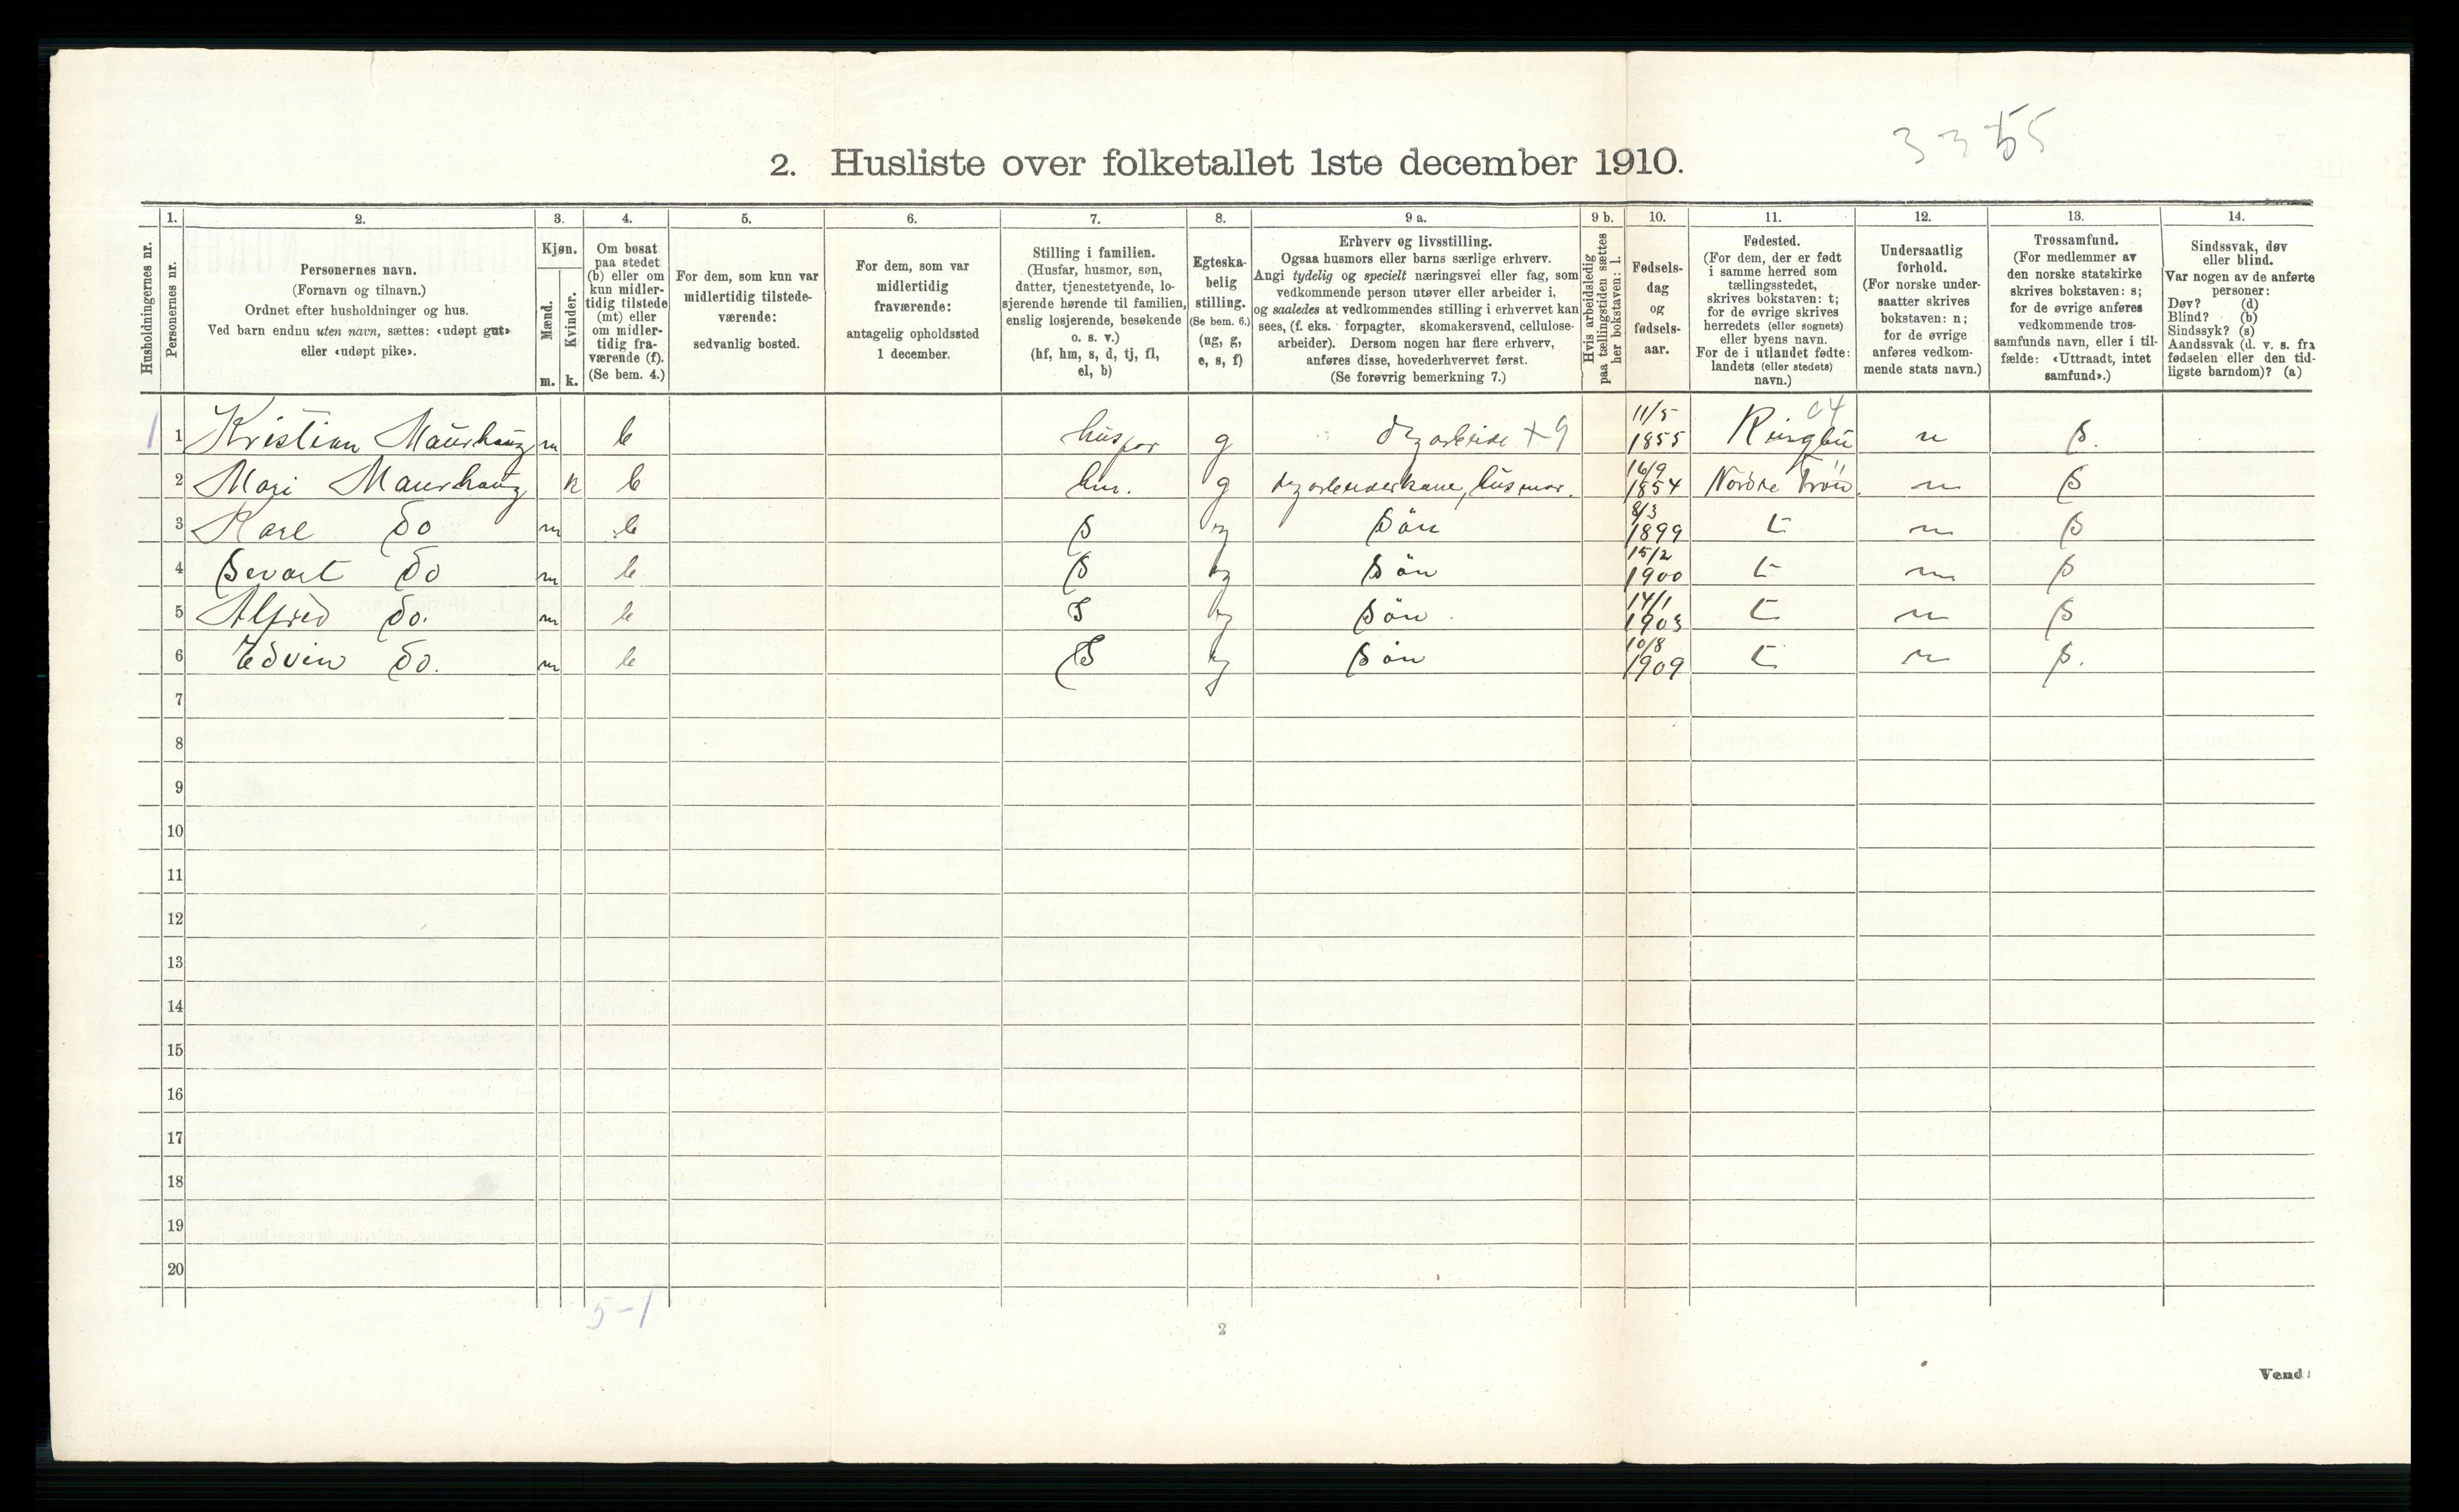 3355
2. Husliste over folketallet 1ste december 1910.
1. 2. 3. 4. 5. 6. 7. 8. 9 a. 9 b. 10. 11. 12. 13. 14.
Husholdningernes nr.
Personernes nr.
Personernes navn.
(Fornavn og tilnavn.)
Ordnet efter husholdninger og hus.
Ved barn endnu uten navn, sættes: «udøpt gut»
eller «udøpt pike».
Kjøn.
Mænd.
Kvinder.
m. k.
Om bosat
paa stedet
(b) eller om
kun midler-
tidig tilstede
(mt) eller
om midler-
tidig fra-
værende (f).
(Se bem. 4.)
For dem, som kun var
midlertidig tilstede-
værende:
sedvanlig bosted.
For dem, som var
midlertidig
fraværende:
antagelig opholdssted
1 december.
Stilling i familien.
(Husfar, husmor, søn,
datter, tjenestetyende, lo-
sjerende hørende til familien,
enslig losjerende, besøkende
o. s. v.)
(hf, hm, s, d, tj, fl,
el, b)
Egteska-
belig
stilling.
(Se bem. 6.)
(ug, g,
e, s, f)
Erhverv og livsstilling.
Ogsaa husmors eller barns særlige erhverv.
Angi tydelig og specielt næringsvei eller fag, som
vedkommende person utøver eller arbeider i,
og saaledes at vedkommendes stilling i erhvervet kan
sees, (f. eks. forpagter, skomakersvend, cellulose-
arbeider). Dersom nogen har flere erhverv,
anføres disse, hovederhvervet først.
(Se forøvrig bemerkning 7.)
Hvis arbeidsledig
paa tællingstiden sættes
her bokstaven: l.
Fødsels-
dag
og
fødsels-
aar.
Fødested.
(For dem, der er født
i samme herred som
tællingsstedet,
skrives bokstaven: t;
for de øvrige skrives
herredets (eller sognets)
eller byens navn.
For de i utlandet fødte:
landets (eller stedets)
navn.)
Undersaatlig
forhold.
(For norske under-
saatter skrives
bokstaven: n;
for de øvrige
anføres vedkom-
mende stats navn.)
Trossamfund.
(For medlemmer av
den norske statskirke
skrives bokstaven: s;
for de øvrige anføres
vedkommende tros-
samfunds navn, eller i til-
fælde: «Uttraadt, intet
samfund».)
Sindssvak, døv
eller blind.
Var nogen av de anførte
personer:
Døv? (d)
Blind? (b)
Sindssyk? (s)
Aandssvak (d. v. s. fra
fødselen eller den tid-
ligste barndom)? (a)
1 1 Kristian Maurhaug m b husfar g dagarbeide +9 11/5 1855 Ringbu 04 n s.
2 Mari Maurhaug k b hm. g dagarbeiderkane, husmor. 16/9 1854 Nordre Fron n s
3 Karl do m b s ug Sön 8/3 1899 t n s
4 Sevart do m b s ug Sön 15/2 1900 t n s
5 Alfred do. m b s ug Sön 14/1 1903 t n s
6 Edvin do. m b s ug Sön 10/8 1909 t n s.
7
8
9
10
11
12
13
14
15
16
17
18
19
20
5-1
2
Vend!